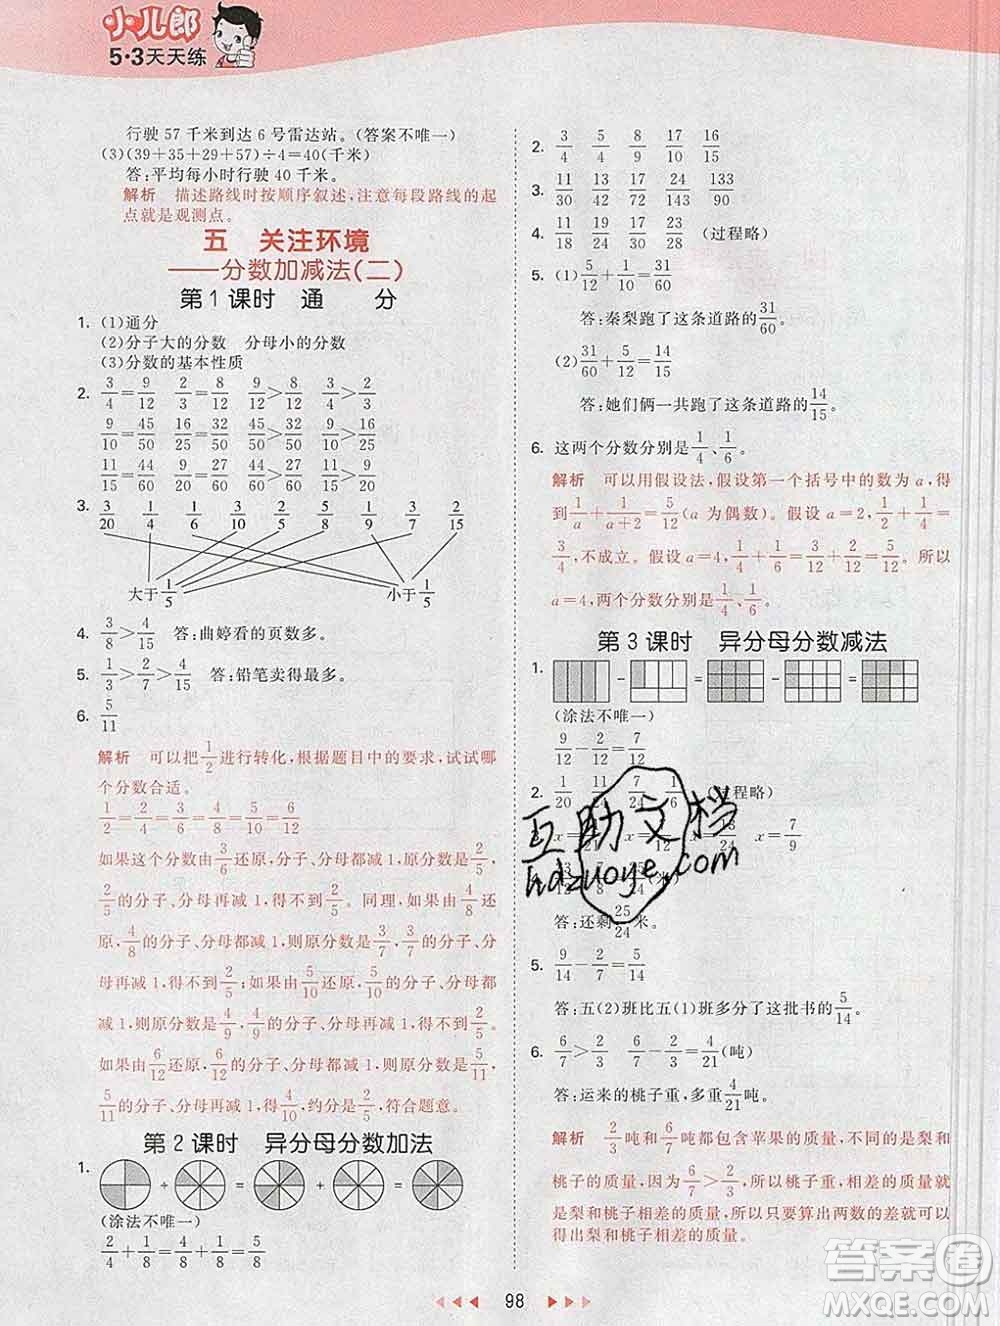 小儿郎
5·3天天练
行驶 57 千米到达 6 号雷达站。(答案不唯一)
(3)(39+35+29+57)÷4=40(千米)
答:平均每小时行驶 40 千米。
解析 描述路线时按顺序叙述,注意每段路线的起
点就是观测点。
五 关注环境
——分数加减法(二)
第 1 课时 通 分
1. (1)通分
(2)分子大的分数 分母小的分数
(3)分数的基本性质
2. 3/4=9/12 2/3=8/12 9/12>8/12 3/4>2/3
9/10=45/50 16/25=32/50 45/50>32/50 9/10>16/25
11/15=44/60 5/12=25/60 44/60>25/60 11/15>5/12
3. 3/20 1/4 1/6 3/10 2/5 5/8 1/9 3/7 2/15
大于1/5 小于1/5
4. 3/8>4/15 答:曲婷看的页数多。
5. 1/3>2/7>3/11 答:铅笔卖得最多。
6. 5/11
解析 可以把1/2进行转化,根据题目中的要求,试试哪
个分数合适。
1/2=2/4=3/6=4/8=5/10=6/12
如果这个分数由3/6还原,分子、分母都减 1,得到2/5,2/5
的分子、分母再减 1,得不到2/5。同理,如果由4/8还
原,3/7的分子、分母都减 1,则原分数为3/7,3/7的分子、
分母再减 1,得不到2/5;如果由5/10还原,分子、分母都
减 1,则原分数为4/9,4/9的分子、分母都减 1,得不到2/5;
如果由6/12还原,分子、分母都减 1,则原分数为5/11,
5/11的分子、分母都减 1,得4/10,约分是2/5,符合题意。
第 2 课时 异分母分数加法
1. + = + =
(涂法不唯一)
2/4+1/8=4/8+1/8=5/8
2. 3/4 4/5 8/9 17/10 16/15
3. 11/30 13/42 30/143 24/77 133/90
4. 11/18 19/24 13/24 8/9 (过程略)
5. (1)5/12+1/10=31/60
答:秦梨跑了这条道路的31/60。
(2)31/60+5/12=14/15
答:她们俩一共跑了这条道路的14/15。
6. 这两个分数分别是1/4、1/6。
解析 可以用假设法,假设第一个括号中的数为 a,得
到1/a+1/(a+2)=5/12(a 为偶数)。假设 a=2,1/2+1/4=
3/4,不成立。假设 a=4,1/4+1/6=5/12,成立。所以
a=4,两个分数分别是1/4、1/6。
第 3 课时 异分母分数减法
1. - = - =
(涂法不唯一)
9/12-2/12=7/12
2. 1/20 7/24 1/6 (过程略)
x=7/9
答:还剩25/24米。
5. 9/14-2/7=5/14
答:五(2)班比五(1)班多分了这批书的5/14。
6. 6/7>2/3 6/7-2/3=4/21(吨)
答:运来的桃子重,多4/21吨。
解析 2/3吨和6/7吨都包含苹果的质量,不同的是梨和
桃子的质量。因为6/7>2/3,所以桃子重,相差的质量就
是梨和桃子相差的质量,所以只要算出两次相差的质
量,就能得出梨和桃子相差的质量。
互助文档
hdzuoye.com
98
答案圈
MXQE.COM